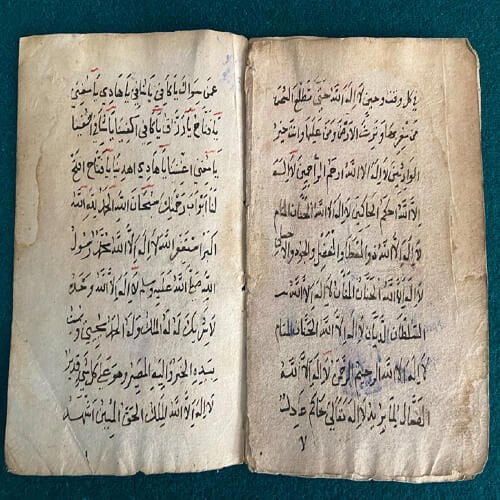 في كل وقت وحين لا اله الا الله حتى تطلع الشمس
من مغربها و نورث الارض ومن عليها وانت خير
الوارثين لا اله الا الله ارحم الراحمين لا اله
الا الله احكم الحاكمين لا اله الا الله الحنان المنان
لا اله الا الله ذو والفضل والجود والاحسان
لا اله الا الله الحنان المنان لا اله الا الله
السلطان الديان لا اله الا الله الحنان
لا اله الا الله الرحيم الرحمن لا اله الا الله
الفعال لما يريد لا اله تعالى
٧
عمن سواك يا كافي يا شافي يا هادي يا مغني
يا فتاح يا رزاق يا كافي اكفينا يا شافي اشفينا
يا مغني اغنينا يا هادي اهدينا يا فتاح افتح
لنا ابواب رحمتك سبحان الله الحمد لله الله
اكبر استغفر الله لا اله الا الله محمد رسول
الله صلى الله عليه وسلم لا اله الا الله وحده
لا شريك له له الملك وله الحمد يحيي ويميت
بيده الخير واليه المصير وهو على كل شي قدير
لا اله الا الله الملك الحق المبين اشهد